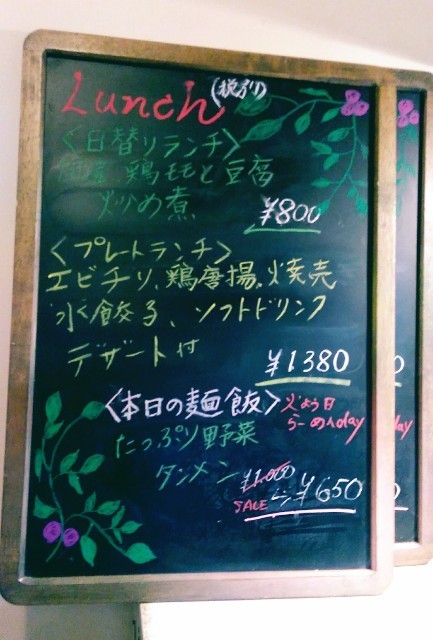 Lunch (税別)
<日替りランチ>
国産 鶏モモと豆腐
炒め煮
¥800
<プレートランチ>
エビチリ、鶏唐揚、焼売
水餃子、ソフトドリンク
デザート付
¥1380
<本日の麺飯> 火よう日
らーめんday
たっぷり野菜
タンメン ¥1,000
SALE ¥650